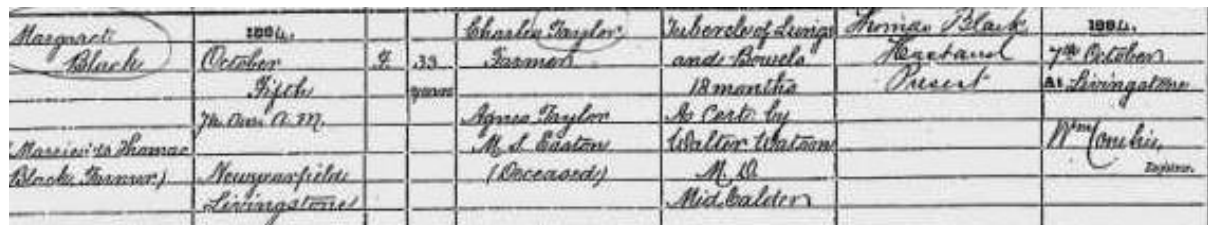 Margaret
Black
(Married to Thomas
Black, Farmer)
1884.
October
Fifth
7h. 0m. A.M.
Newyearfield
Livingstone
F.
33
years
Charles Taylor
Farmer
Agnes Taylor
M.S. Easton
(Deceased)
Tubercle of Lungs
and Bowels
18 months
As Cert. by
Walter Watson
M.D.
Mid Calder
Thomas Black
Husband
Present
1884.
7th October
At Livingstone
Wm
Registrar.